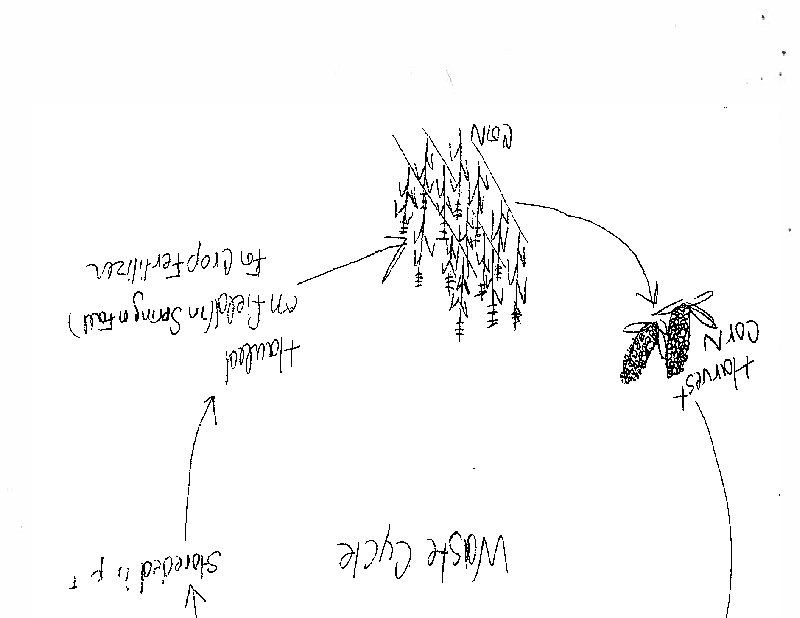 Waste Cycle
in
Harvest
CorN
Hauled
on Field (in Spring n Fall)
For Crop Fertilizer
CorN